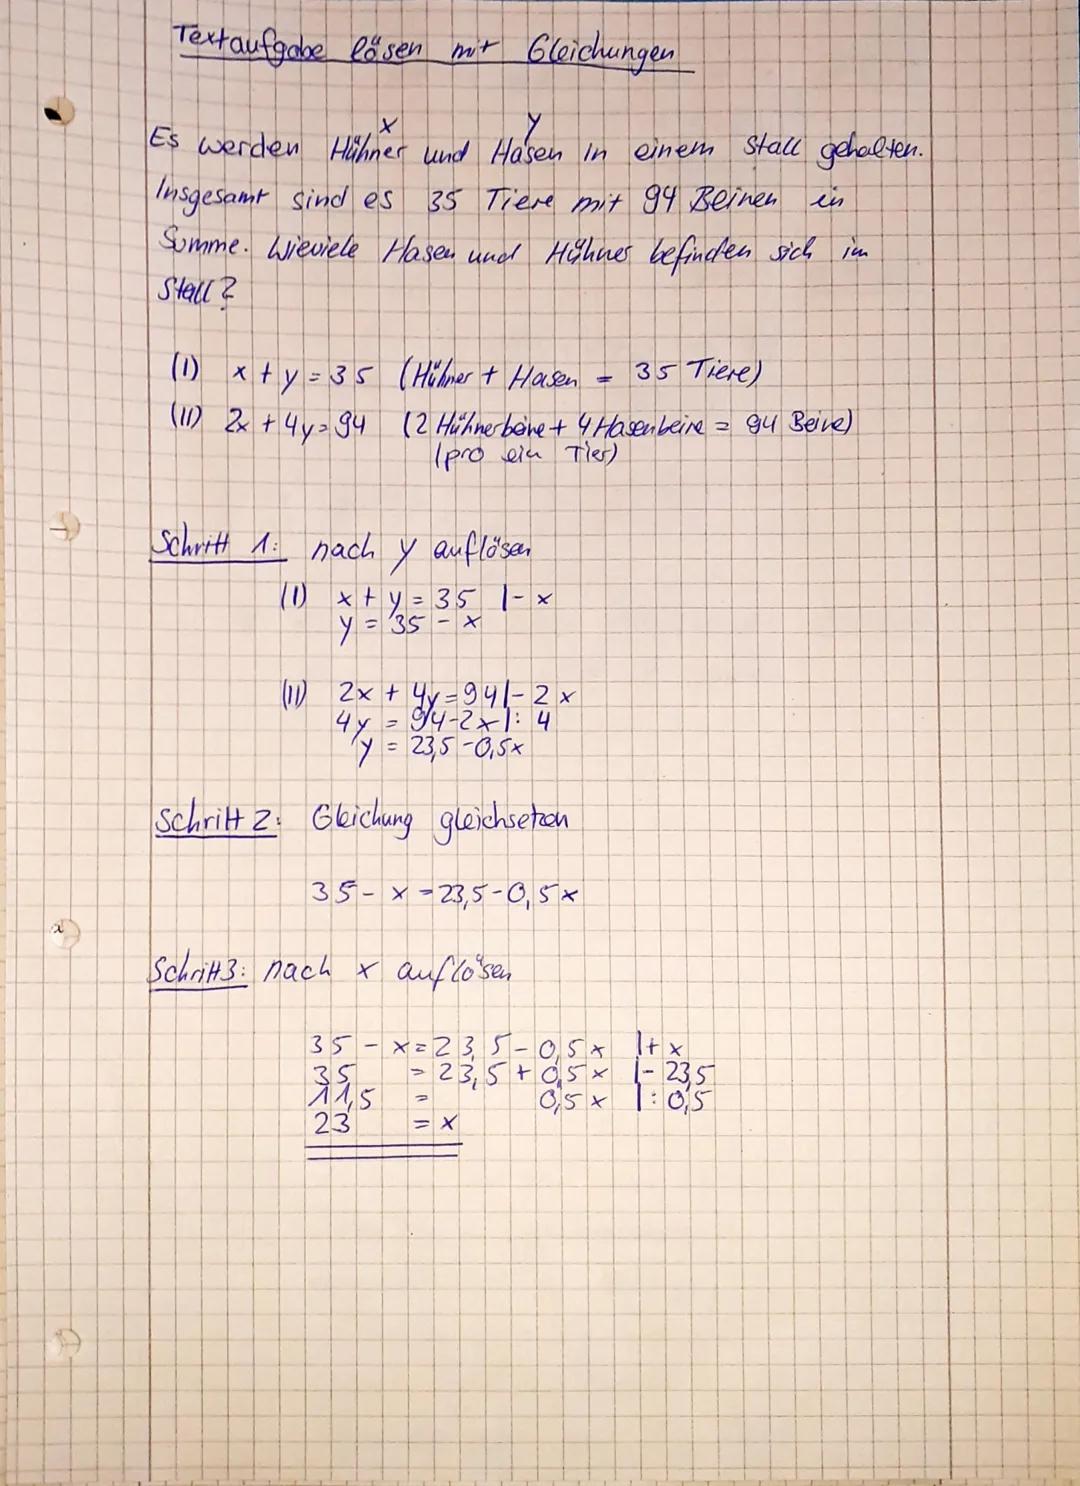 Textaufgabe lösen mit Gleichungen
x y
Es werden Hühner und Hasen in einem Stall gehalten.
Insgesamt sind es 35 Tiere mit 94 Beinen in
Summe. Wieviele Hasen und Hühner befinden sich im
Stall?
(I) x + y = 35 (Hühner + Hasen = 35 Tiere)
(II) 2x + 4y = 94 (2 Hühnerbeine + 4 Hasenbeine = 94 Beine)
(pro ein Tier)
Schritt 1: nach y auflösen
(I) x + y = 35 |- x
y = 35 - x
(II) 2x + 4y = 94 |- 2x
4y = 94-2x |: 4
y = 23,5 - 0,5x
Schritt 2: Gleichung gleichsetzen
35 - x = 23,5 - 0,5x
Schritt 3: nach x auflösen
35 - x = 23,5 - 0,5x |+ x
35 = 23,5 + 0,5x |- 23,5
11,5 = 0,5x |: 0,5
23 = x